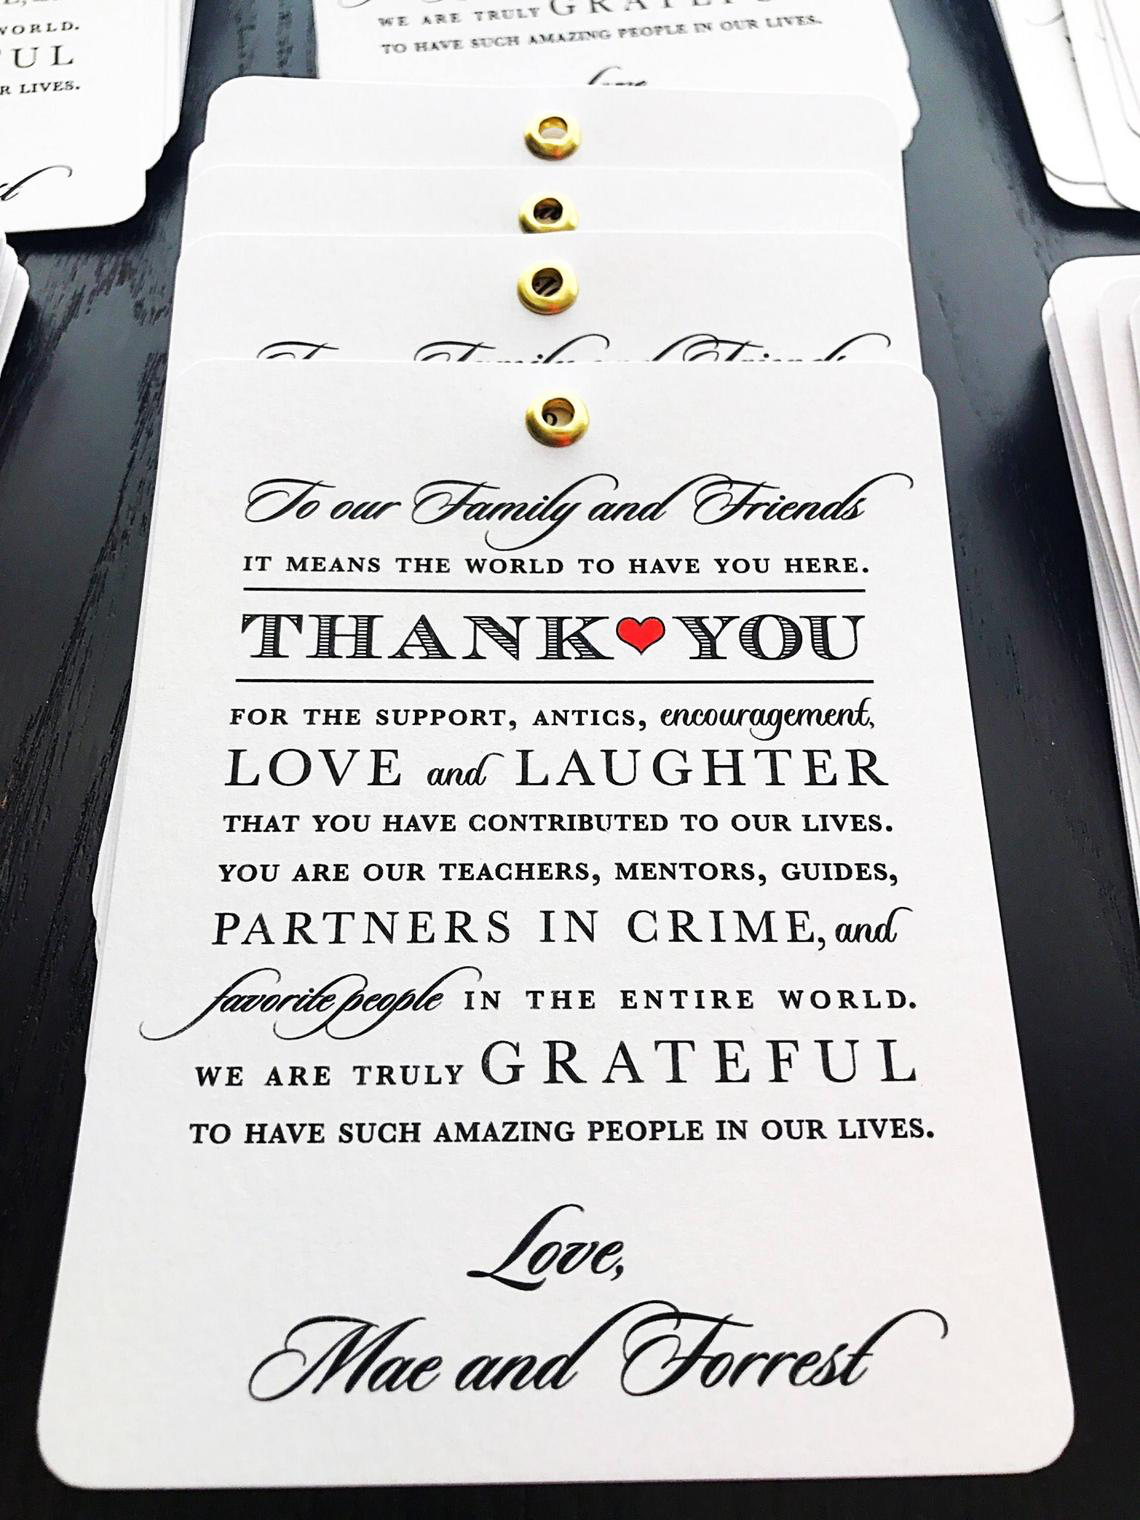 WORLD.
UL
R LIVES.
WE ARE TRULY GRATEFUL
TO HAVE SUCH AMAZING PEOPLE IN OUR LIVES.
Love
To our Family and Friends
To our Family and Friends
IT MEANS THE WORLD TO HAVE YOU HERE.
THANK❤YOU
FOR THE SUPPORT, ANTICS, encouragement,
LOVE and LAUGHTER
THAT YOU HAVE CONTRIBUTED TO OUR LIVES.
YOU ARE OUR TEACHERS, MENTORS, GUIDES,
PARTNERS IN CRIME, and
favorite people IN THE ENTIRE WORLD.
WE ARE TRULY GRATEFUL
TO HAVE SUCH AMAZING PEOPLE IN OUR LIVES.
Love,
Mae and Forrest